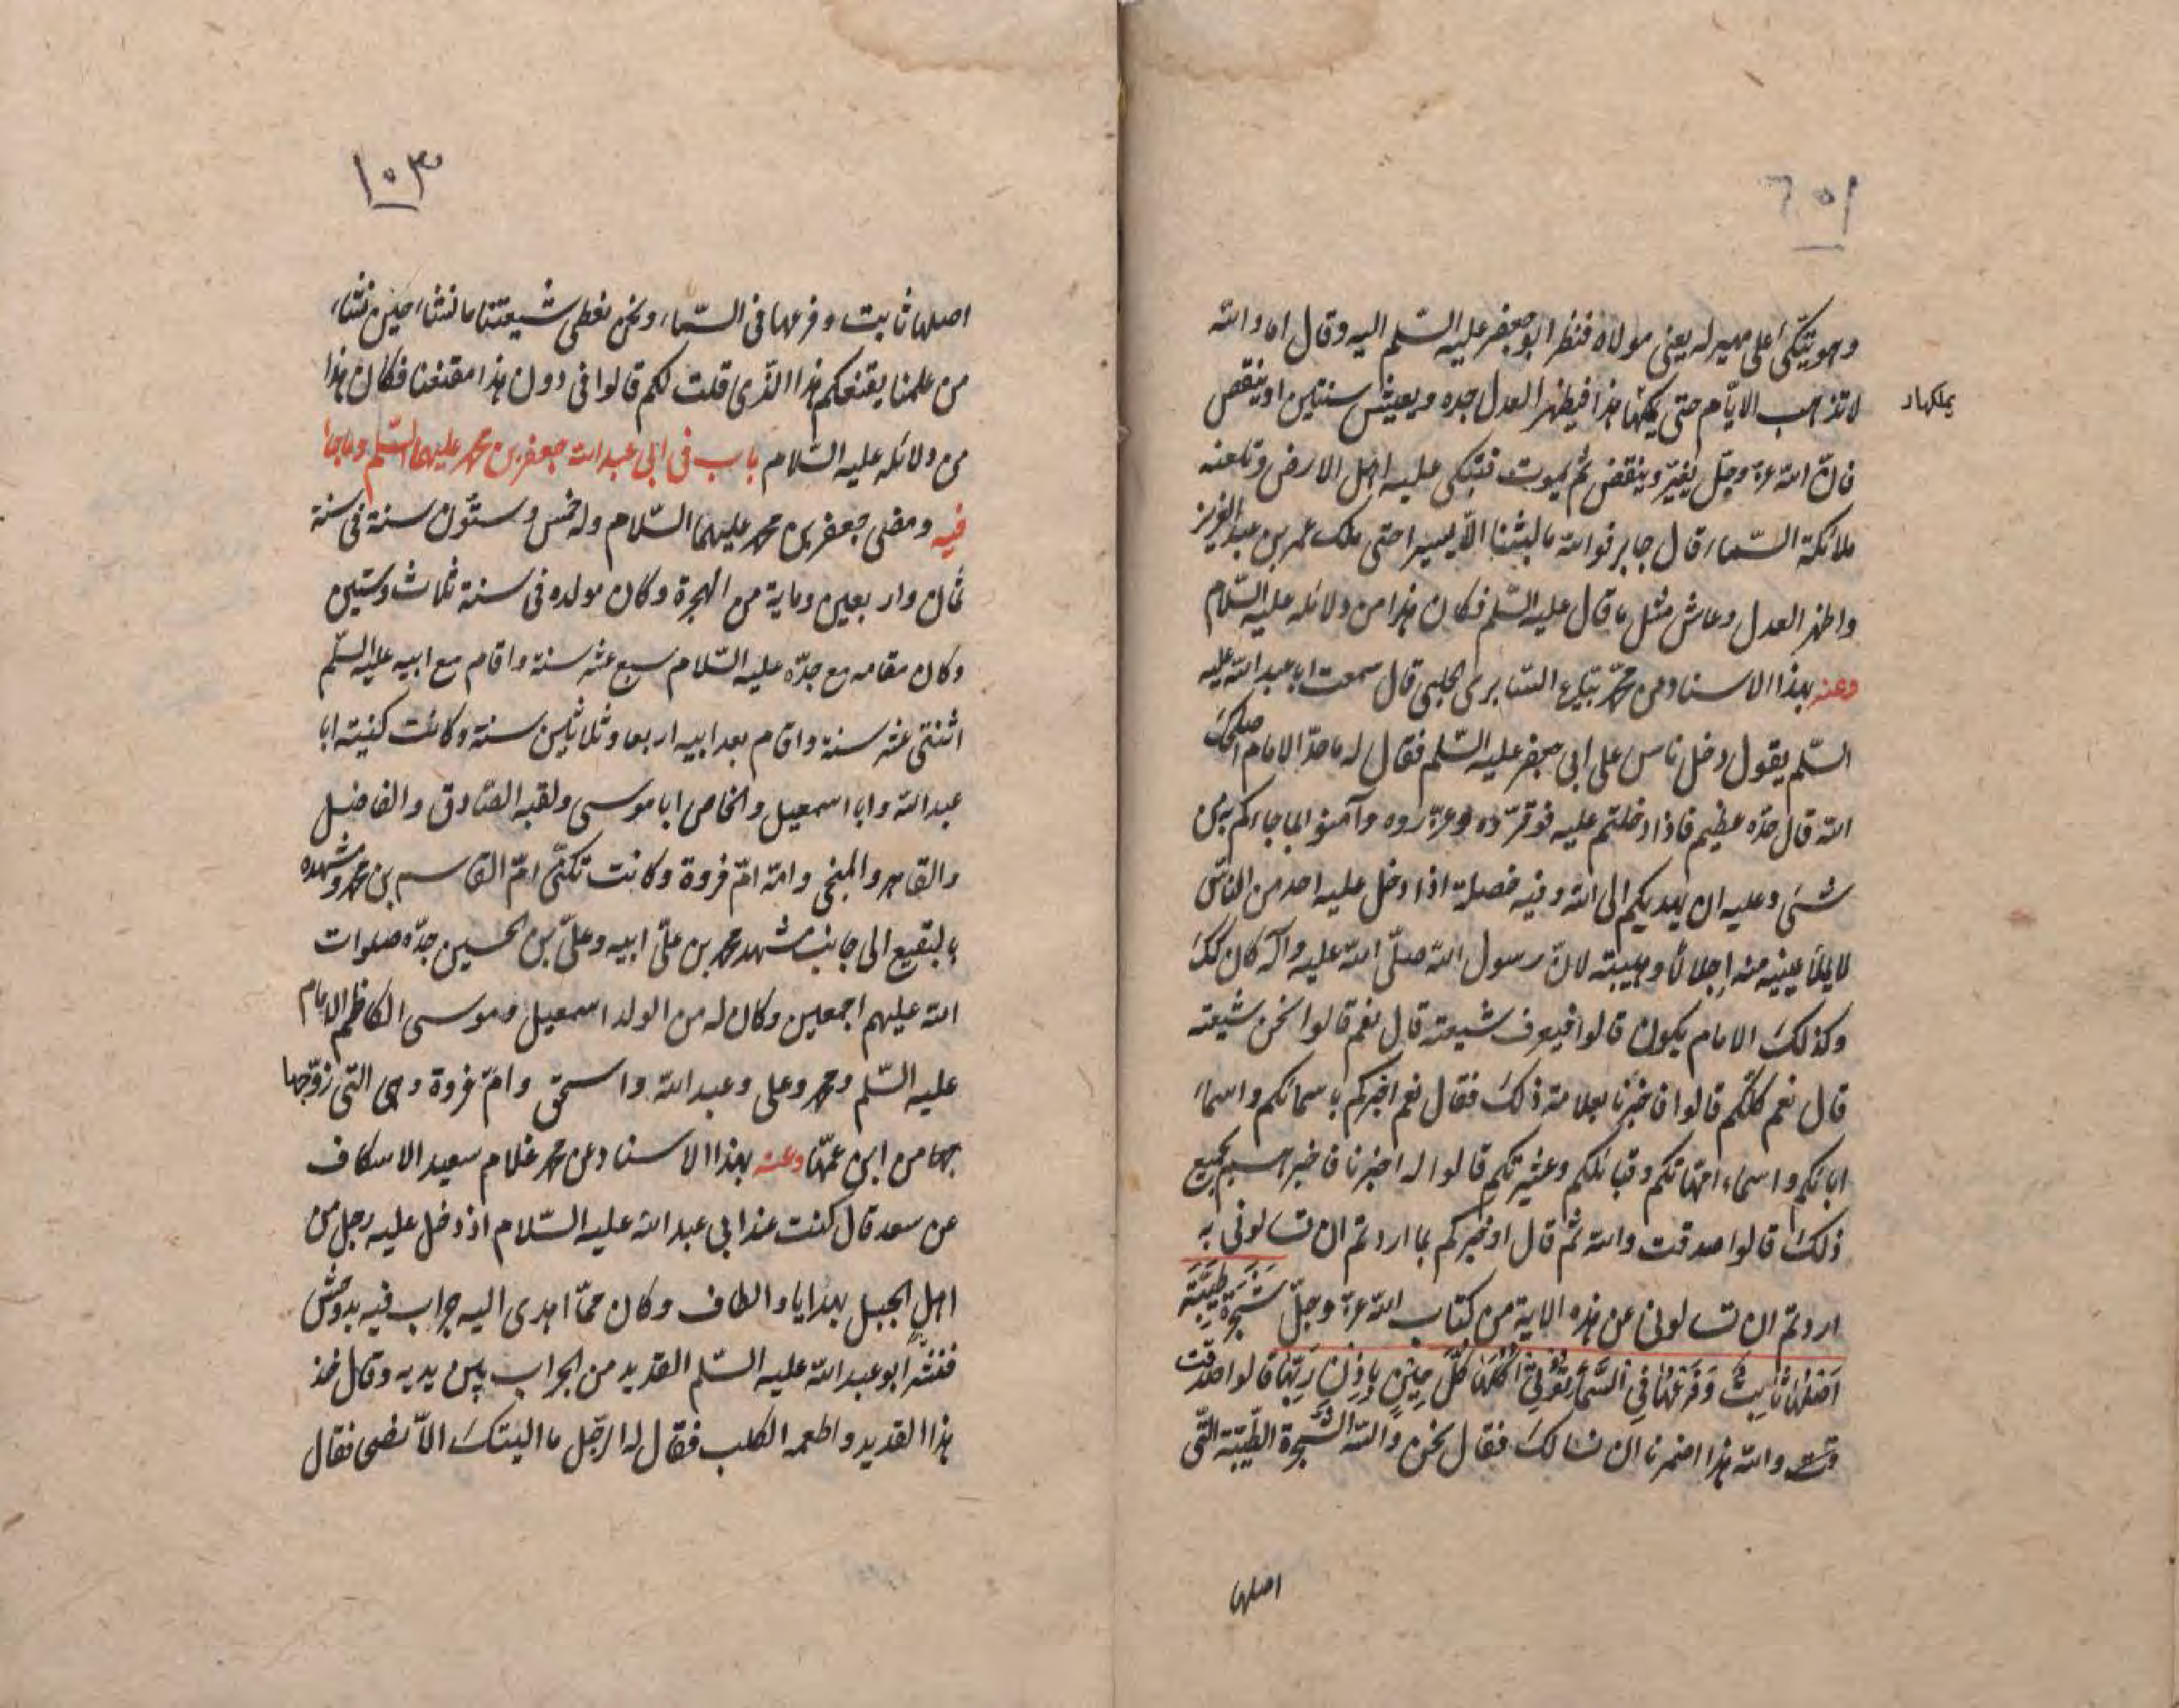 ١٠٢
وهو يتكئ على مهير له يعنى مولاه فنظر ابو جعفر عليه السّلم اليه وقال اما والله
لا تذهب الايّام حتى يملكها هذا فيظهر العدل جده ويعيش سنتين او ينقص
يملكها د
فان الله عزّ وجلّ يغيّر وينقض ثم يموت فتبكى عليه اهل الارض وتلعنه
ملائكة السّماء قال جابر فوالله ما لبثنا الّا يسيرا حتى ملك عمر بن عبد العزيز
واظهر العدل وعاش مثل ما قال عليه السّلم فكان هذا من دلائله عليه السّلام
وعنه بهذا الاسناد عن محمّد بيّاع السّابرى الحلبى قال سمعت ابا عبد الله عليه
السّلم يقول دخل ناس على ابى جعفر عليه السّلم فقال له ما حدّ الامام اصلحك
الله قال حدّه عظيم فاذا دخلتم عليه فوقّروه وعزّروه وآمنوا بما جاءكم به من
شئ وعليه ان يهديكم الى الله وفيه خصلة اذا دخل عليه احد من النّاس
لا يملأ عينيه منه اجلالًا وهيبته لانّ رسول الله صلّى الله عليه وآله كان كك
وكذلك الامام يكون قالوا فيعرف شيعته قال نعم قالوا نحن شيعته
قال نعم كلّكم قالوا فاخبرنا بعلامة ذلك فقال نعم اخبركم باسمائكم واسماء
ابائكم واسماء امّهاتكم وقبائلكم وعشيرتكم قالوا له اخبرنا فاخبرهم بجميع
ذلك قالوا صدقت والله ثم قال اوخبركم بما اردتم ان تسالونى به
اردتم ان تسالونى عن هذه الاية من كتاب الله عزّ وجلّ شَجَرَة طَيِّبَة
اَصْلُها ثابِتٌ وَفَرْعُها فِي السَّماءِ تُؤْتِي اُكُلَها كُلَّ حِينٍ بِاِذْنِ رَبِّها قالوا صدقت
والله هذا اضمرنا ان نسالك فقال نحن والله الشّجرة الطّيّبة الّتى
اصلها
١٠٣
اصلها ثابت وفرعها فى السّماء ونحن نعطى شيعتنا ما نشاء حين نشاء
من علمنا يقنعكم هذا الّذى قلت لكم قالوا فى دون هذا مقنعنا فكان هذا
من دلائله عليه السّلام باب فى ابى عبد الله جعفر بن محمد عليهما السّلم وما جاء
فيه ومضى جعفر بن محمد عليهما السّلام وله خمس وستّون سنة فى سنة
ثمان واربعين وماية من الهجرة وكان مولده فى سنة ثلاث وستين
وكان مقامه مع جدّه عليه السّلام سبع عشر سنة واقام مع ابيه عليه السلّم
اثنتى عشر سنة واقام بعد ابيه اربعا وثلاثين سنة وكانت كنيته ابا
عبد الله وابا اسمعيل والخاص ابا موسى ولقبه الصّادق والفاضل
والقاهر والمنجى وامّه امّ فروة وكانت تكنّى امّ القاسم بن محمد ومشهده
بالبقيع الى جانب مشهد محمد بن علىّ ابيه وعلىّ بن الحسين جدّه صلوات
الله عليهم اجمعين وكان له من الولد اسمعيل وموسى الكاظم الامام
عليه السّلم ومحمد وعلى وعبد الله واسحق وامّ فروة وهى التى زوّجها
بها من ابن عمّها وعنه بهذا الاسناد عن محمد غلام سعيد الاسكاف
عن سعد قال كنت عند ابى عبد الله عليه السّلام اذ دخل عليه رجل من
اهل الجبل بهدايا والطاف وكان ممّا اهدى اليه جراب فيه
فنثر ابو عبد الله عليه السّلم القديد من الجراب بين يديه وقال خذ
هذا القديد واطعمه الكلب فقال له الرّجل ما اليتك الّا نصحى فقال